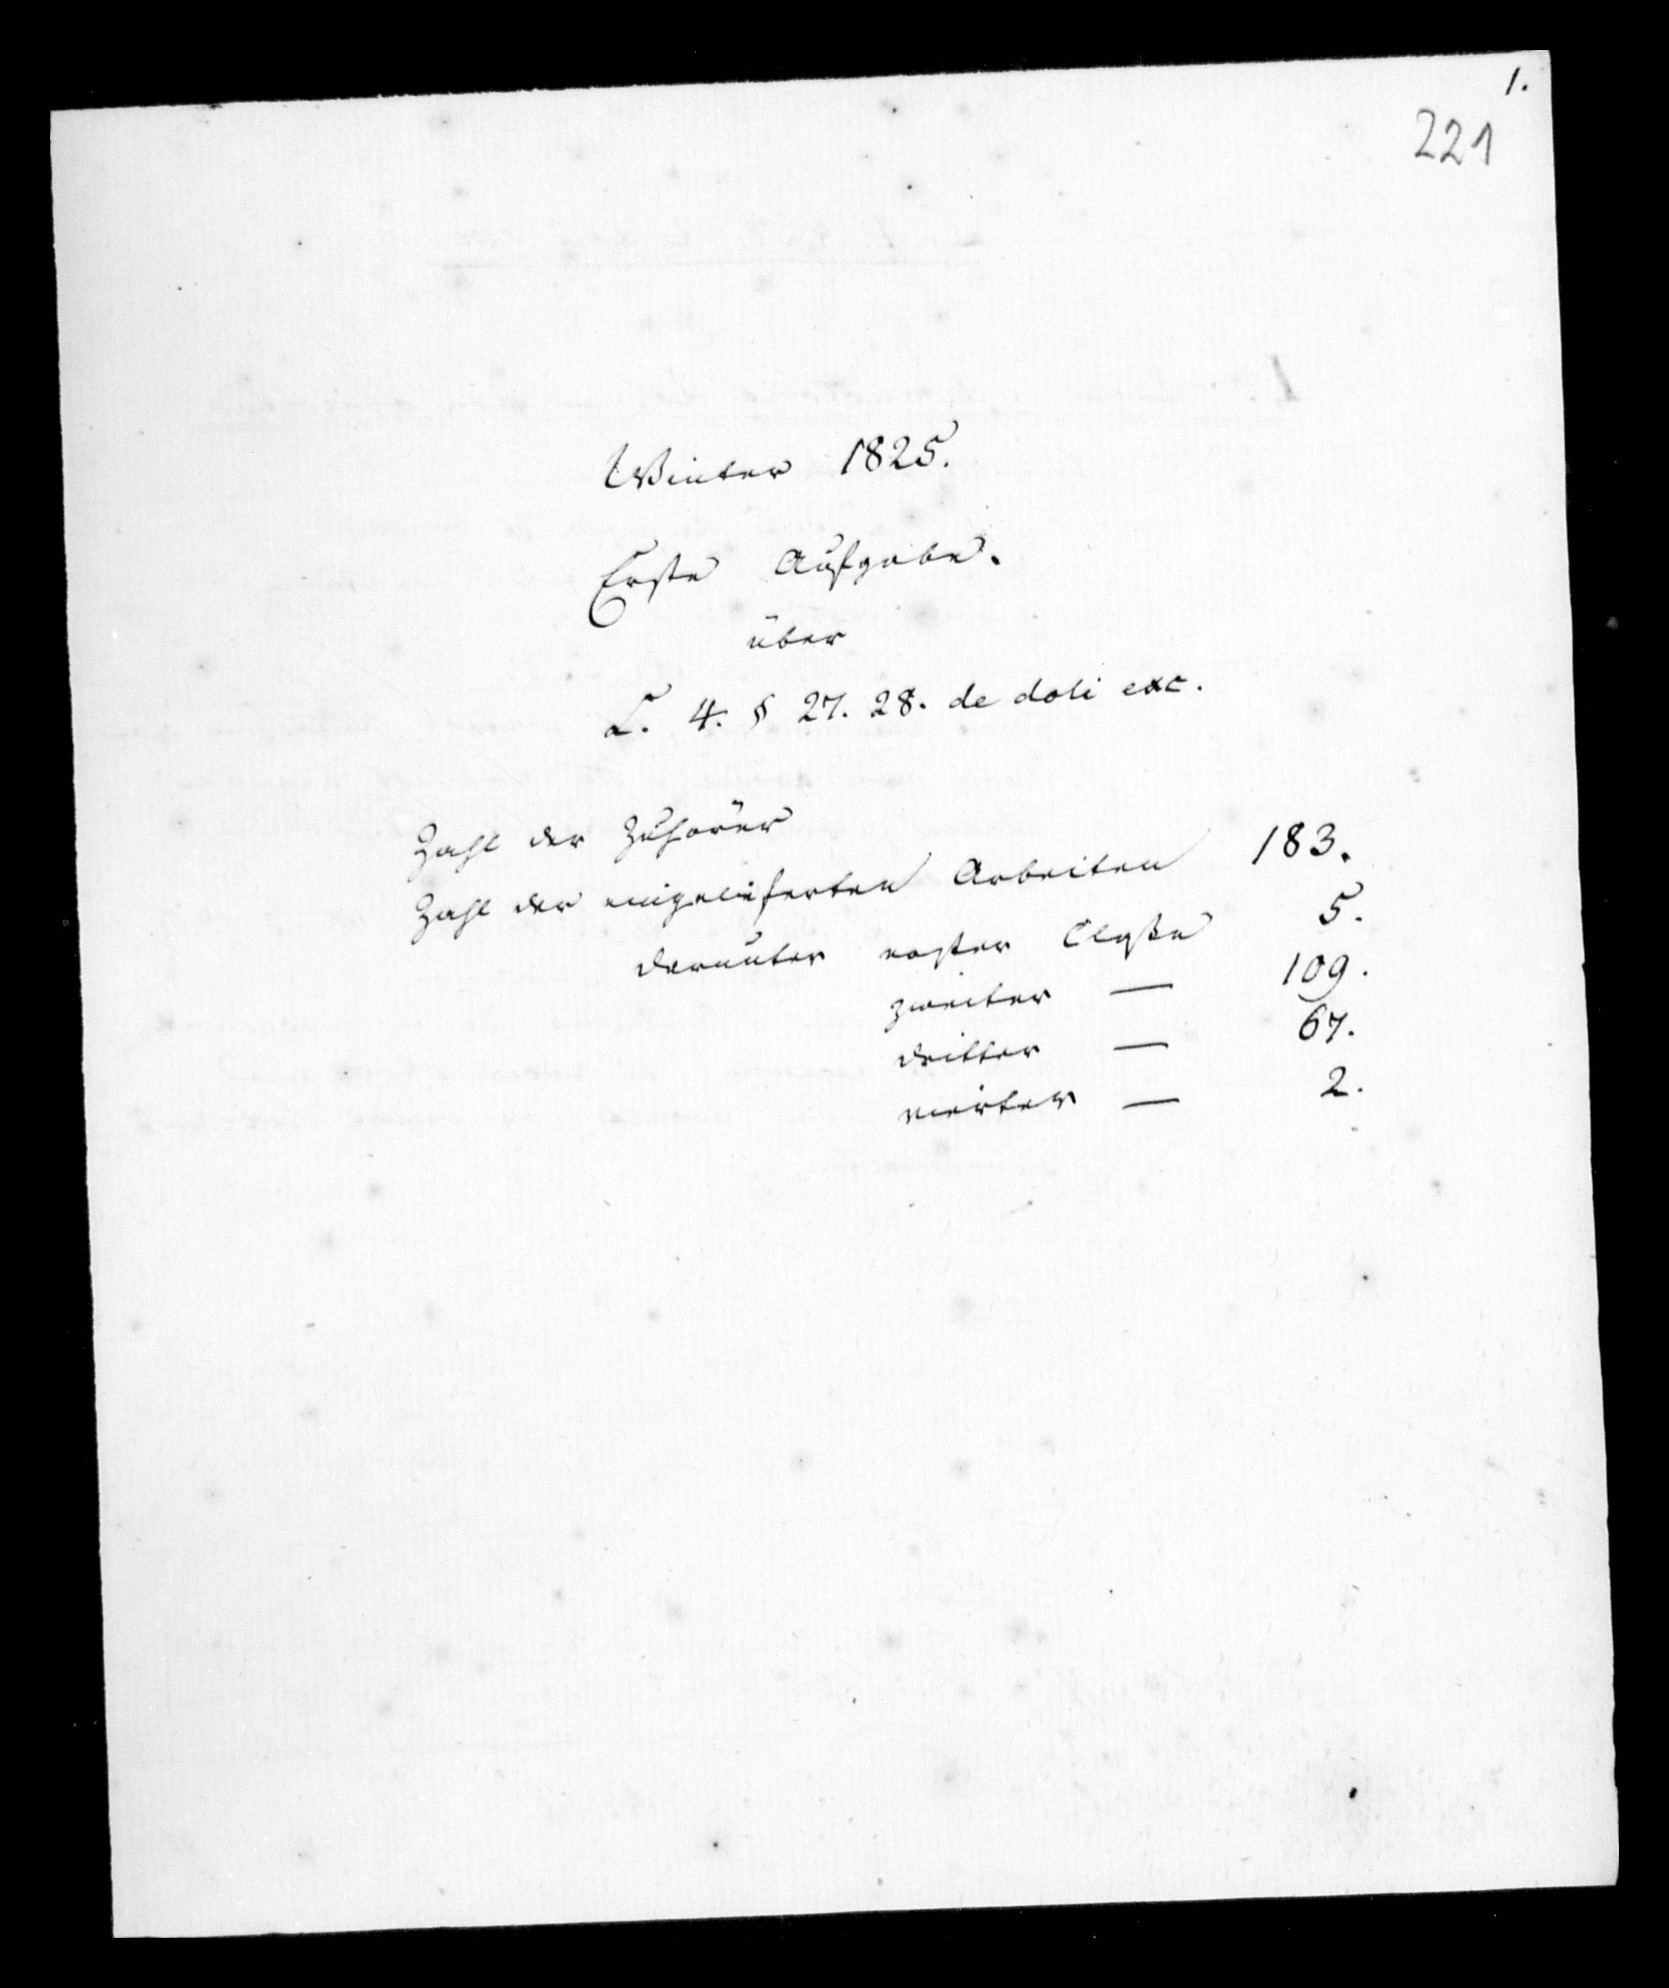 1.
221
Winter 1825.
Erste Aufgabe.
über
L. 4. § 27. 28. de doli exc.
Zahl der Zuhörer
Zahl der eingelieferten Arbeiten 183.
darunter erster Classe 5.
zweiter — 109.
dritter — 67.
vierter — 2.